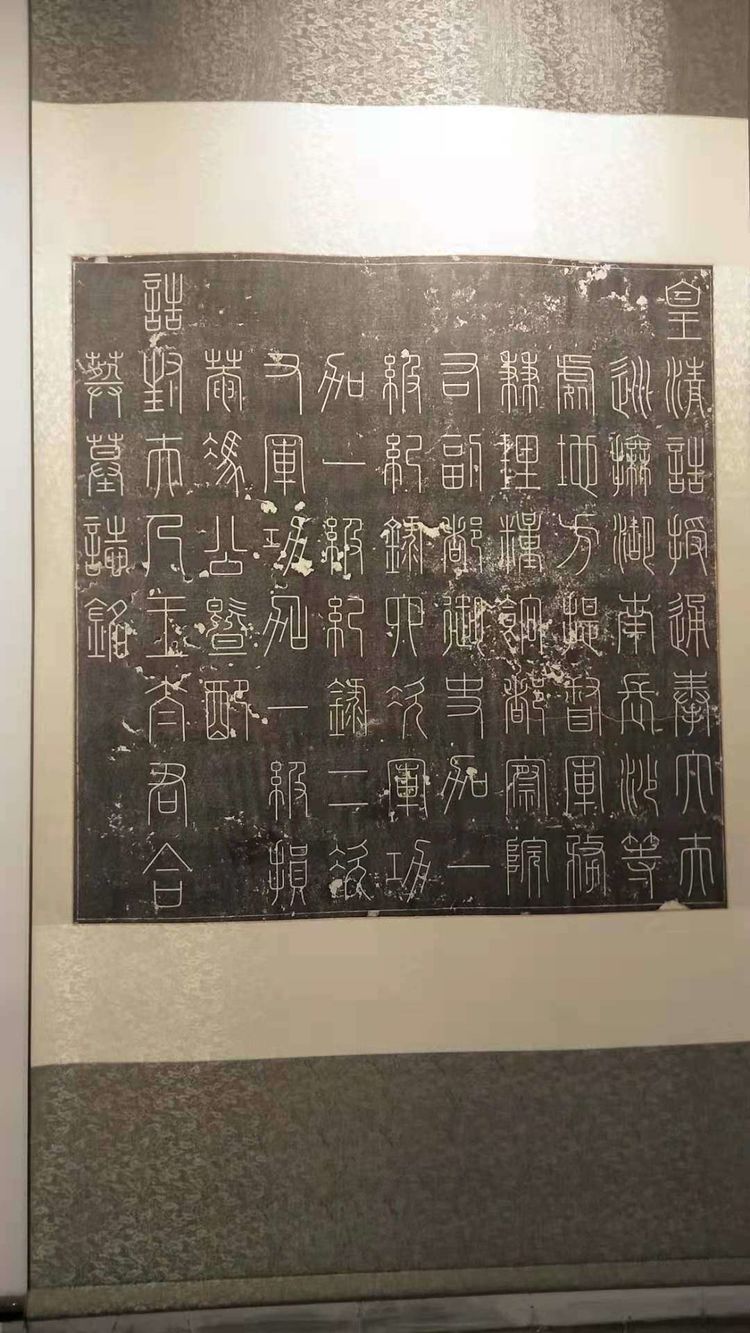 皇清誥授通奉大夫
巡撫湖南長沙等
處地方提督軍務
兼理糧餉都察院
右副都御史加一
級紀錄六次軍功
加一級紀錄二次
又軍功加一級損
菴馮公暨配
誥封夫人太君合
葬墓誌銘